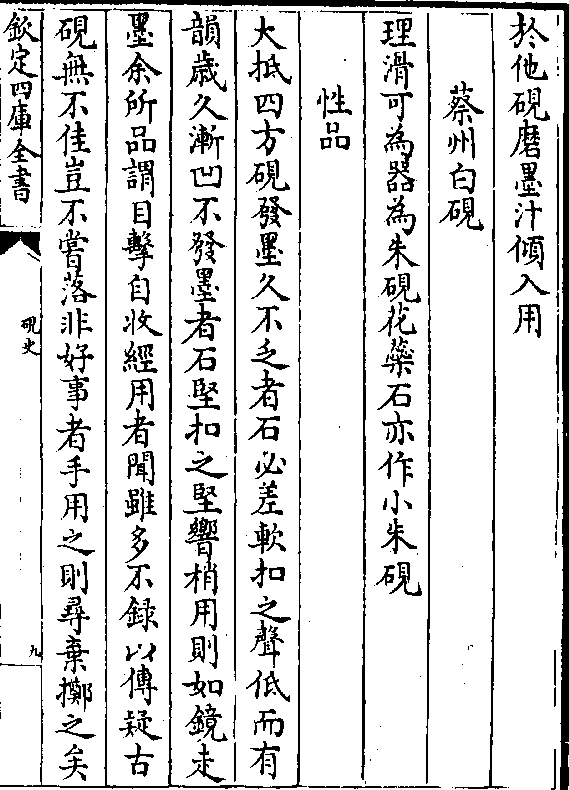 於他硯磨墨汁傾入用
蔡州白硯
理滑可為器為朱硯花蘂石亦作小朱硯
性品
大抵四方硯發墨久不乏者石必差軟扣之聲低而有
韻歲久漸凹不發墨者石堅扣之堅響稍用則如鏡走
墨余所品謂目擊自收經用者聞雖多不録以傳疑古
硯無不佳豈不嘗落非好事者手用之則尋棄擲之矣
欽定四庫全書
硯史
九